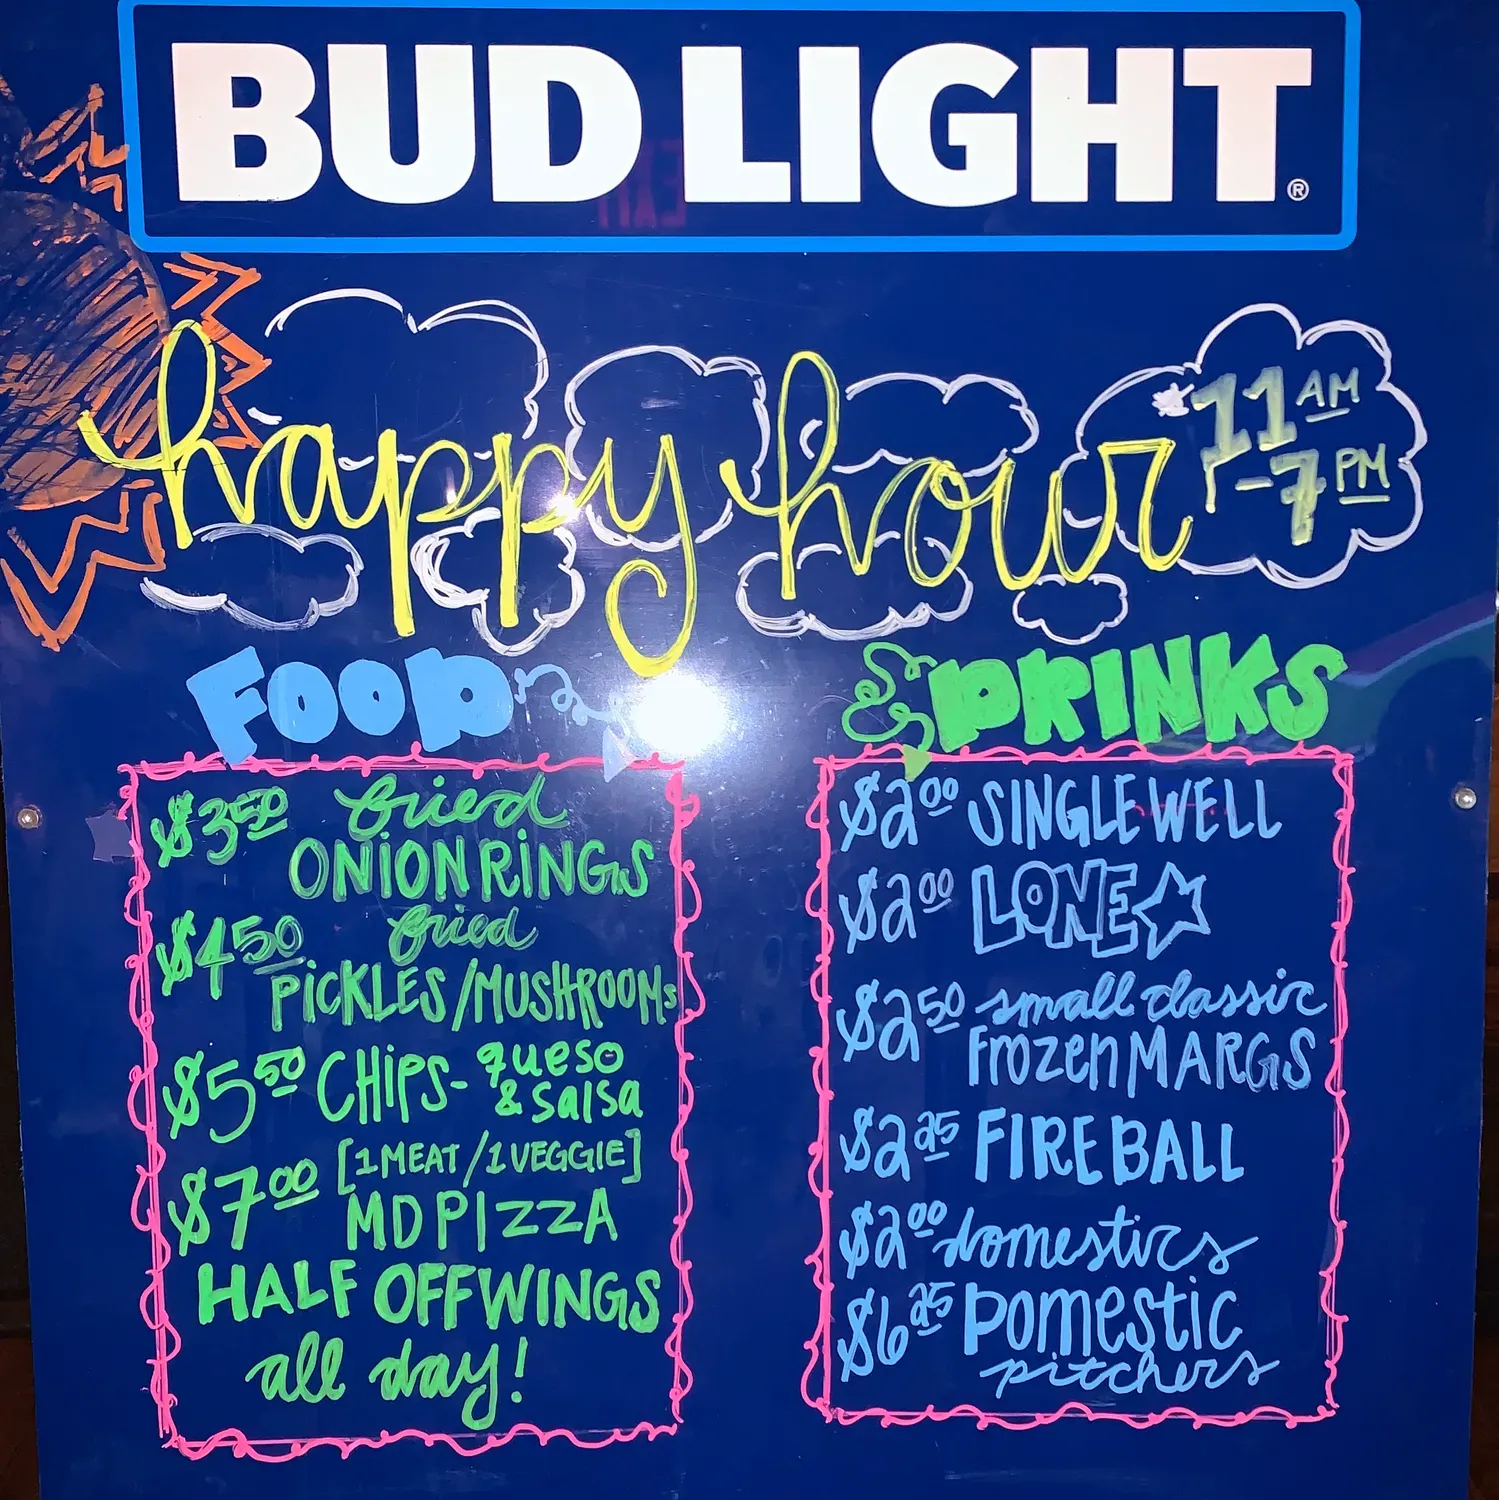 BUD LIGHT®
happy hour
11 AM
-7 PM
FOOD
& DRINKS
$3.50 fried
ONION RINGS
$4.50 fried
PICKLES/MUSHROOMs
$5.50 CHIPS- queso
& salsa
[1 MEAT/1 VEGGIE]
$7.00 MD PIZZA
HALF OFF WINGS
all day!
$2.00 SINGLE WELL
$2.00 LONE
$2.50 small classic
Frozen MARGS
$2.25 FIREBALL
$2.00 domestics
$6.25 Domestic
pitchers